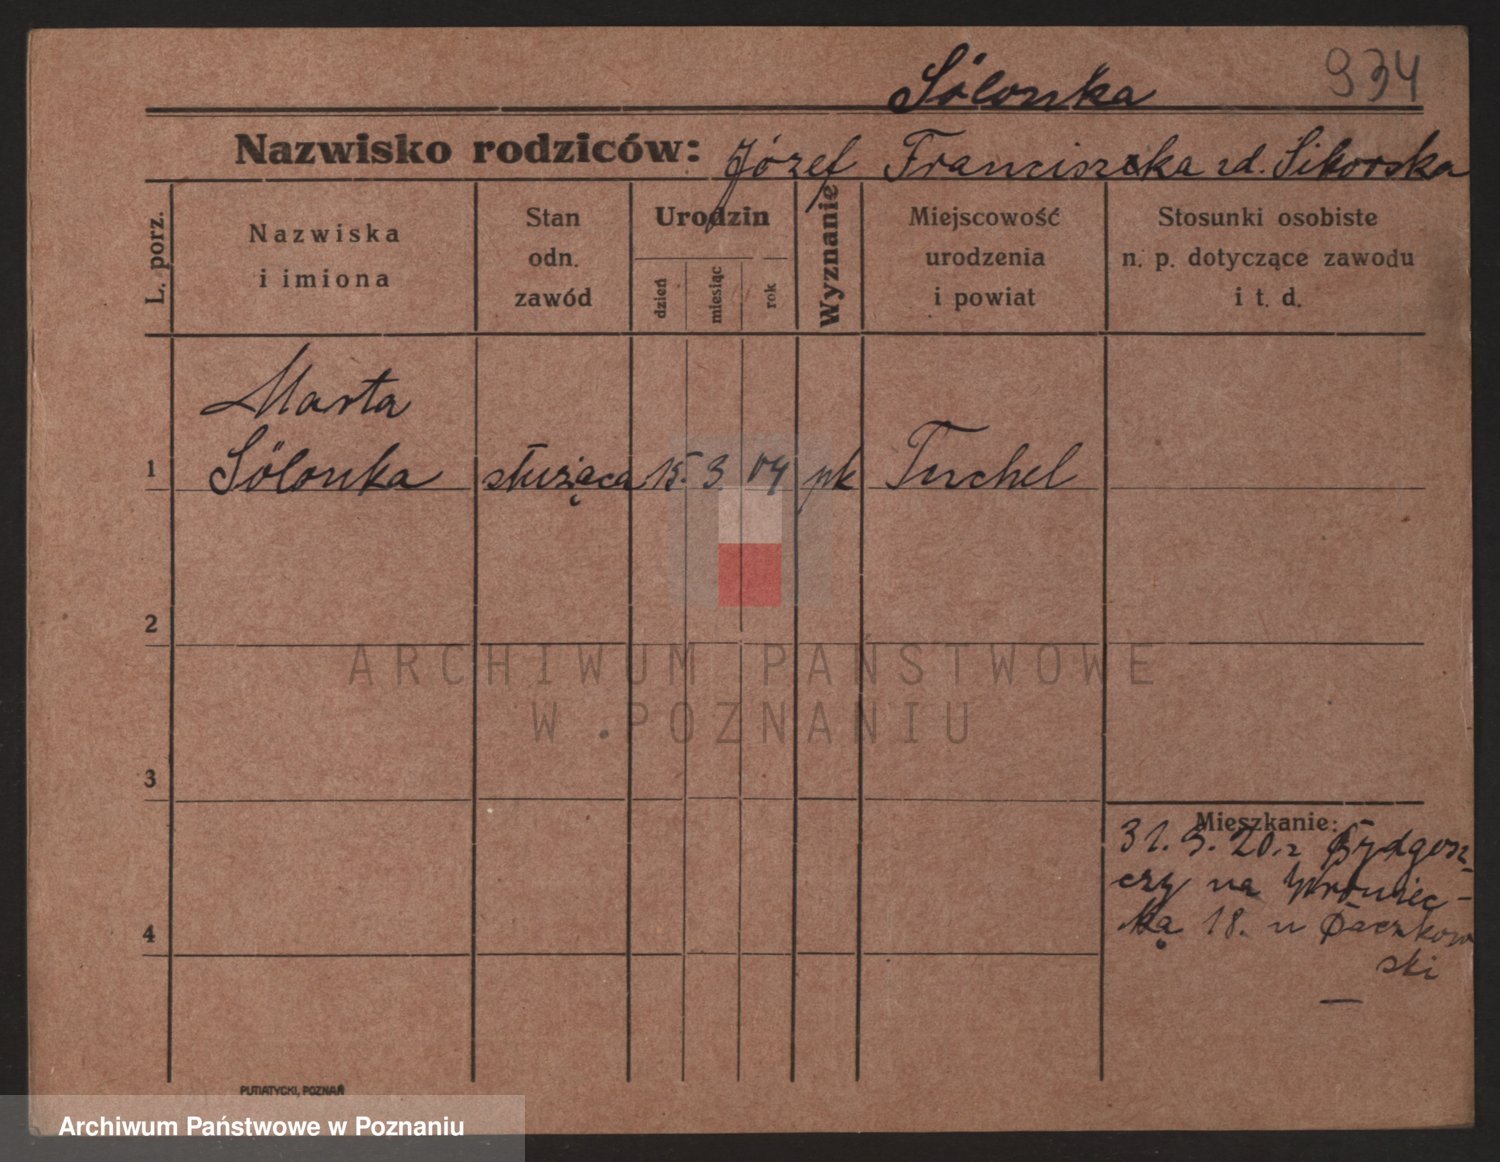 Sölonka 934
Nazwisko rodziców: Józef Franciszka zd. Sikorska
L. porz.
Nazwiska
i imiona
Stan
odn.
zawód
Urodzin
dzień
miesiąc
rok
Wyznanie
Miejscowość
urodzenia
i powiat
Stosunki osobiste
n. p. dotyczące zawodu
i t. d.
Marta
1 Sölonka służąca 15. 3 04 rk Tuchel
2
ARCHIWUM PAŃSTWOWE
W POZNANIU
3
Mieszkanie:
31. 3. 20. z Bydgosz-
czy na Wroniec-
ką 18. u Baczkow
4
ski
PUTIATYCKI, POZNAŃ
Archiwum Państwowe w Poznaniu